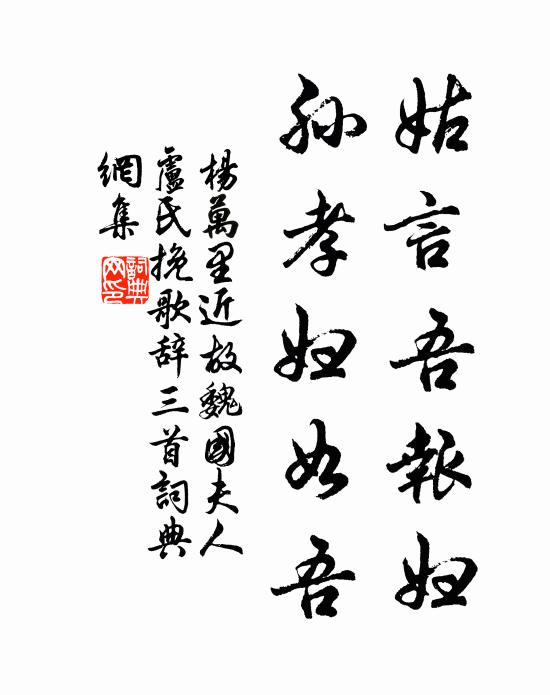 姑言吾報妇
孙孝妇如吾
楊萬里近故魏國夫人
盧氏挽歌辞三首詞典
網集
詞典
网印